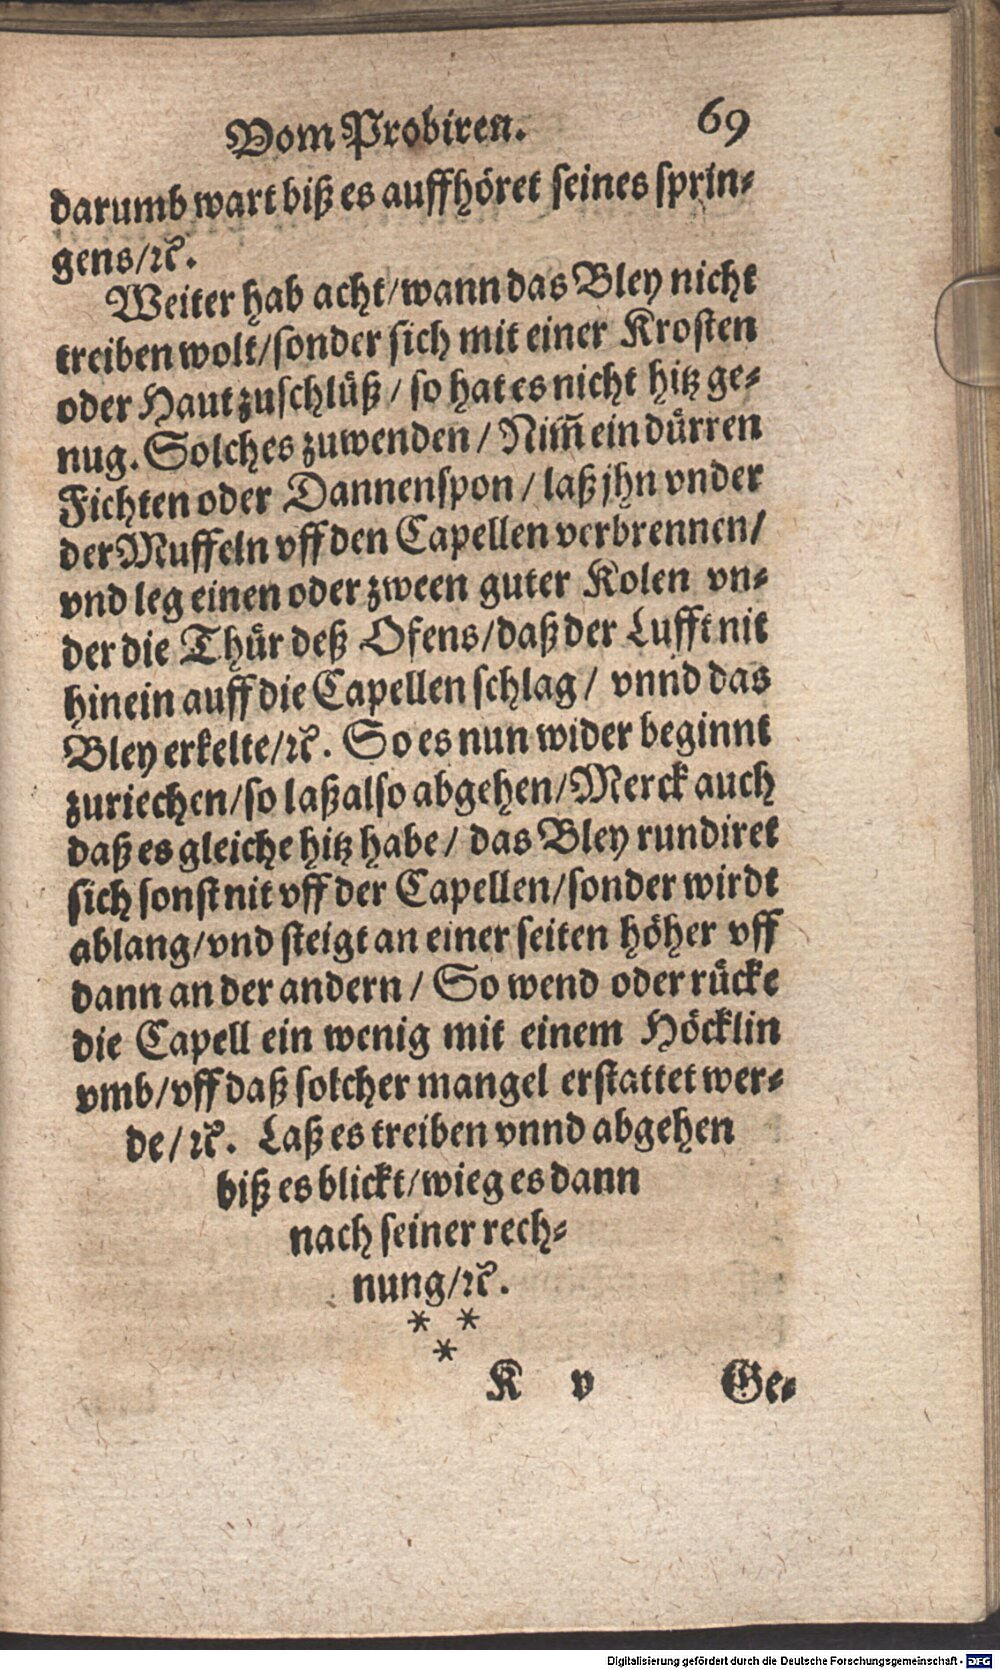 Vom Probiren. 69
darumb wart biß es auffhöret seines sprin-
gens/ꝛc.
Weiter hab acht/wann das Bley nicht
treiben wolt/sonder sich mit einer Krosten
oder Haut zuschlüß / so hat es nicht hitz ge-
nug. Solches zuwenden / Nim̃ ein dürren
Fichten oder Dannenspon / laß jhn vnder
der Muffeln vff den Capellen verbrennen/
vnd leg einen oder zween guter Kolen vn-
der die Thür deß Ofens/daß der Lufft nit
hinein auff die Capellen schlag / vnnd das
Bley erkelte/ꝛc. So es nun wider beginnt
zuriechen/so laß also abgehen/Merck auch
daß es gleiche hitz habe / das Bley rundiret
sich sonst nit vff der Capellen/sonder wirdt
ablang/vnd steigt an einer seiten höher vff
dann an der andern / So wend oder rücke
die Capell ein wenig mit einem Höcklin
vmb/vff daß solcher mangel erstattet wer-
de/ꝛc. Laß es treiben vnnd abgehen
biß es blickt/wieg es dann
nach seiner rech-
nung/ꝛc.
* *
*
K v Ge-
Digitalisierung gefördert durch die Deutsche Forschungsgemeinschaft - DFG